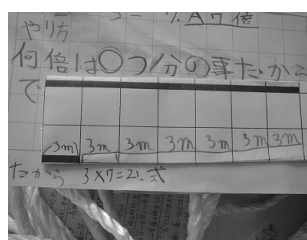 3= 7. A 7倍
やり方
何倍は〇つ分の事だから
で
3m 3m 3m 3m 3m 3m 3m
だから 3×7=21.式